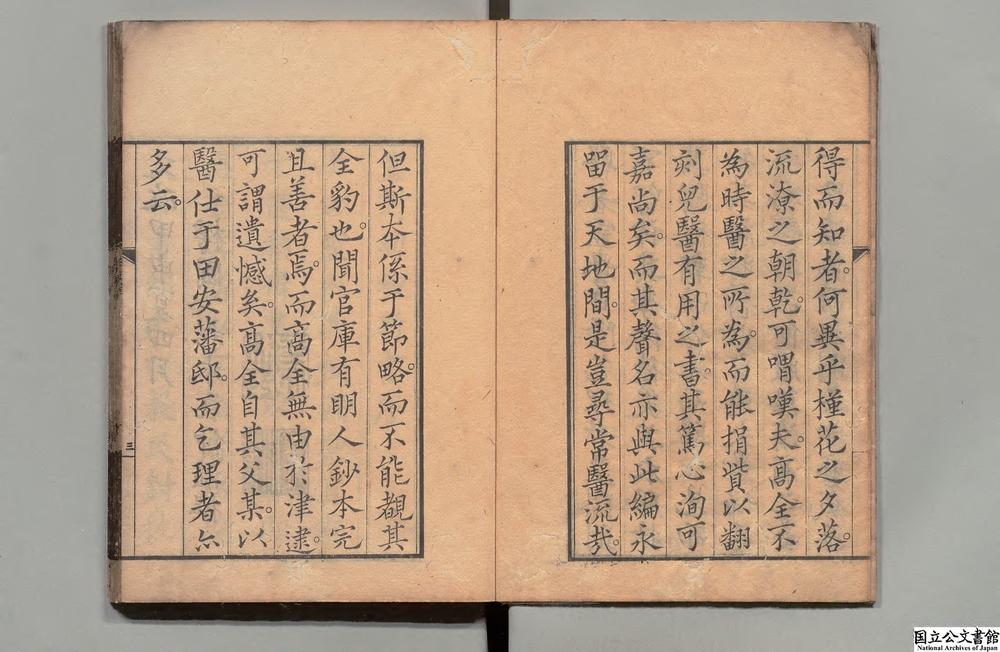 得而知者。何異乎槿花之夕落。
流潦之朝乾。可喟嘆夫。高全不
為時醫之所為。而能捐貲以翻
刻兒醫有用之書。其篤心洵可
嘉尚矣。而其聲名亦與此編永
留于天地間。是豈尋常醫流哉。
但斯本係于節略。而不能覩其
全豹也。聞官庫有明人鈔本完
且善者焉。而高全無由於津逮。
可謂遺憾矣。高全自其父某。以
醫仕于田安藩邸。而乞理者尒
多云。
三
国立公文書館
National Archives of Japan